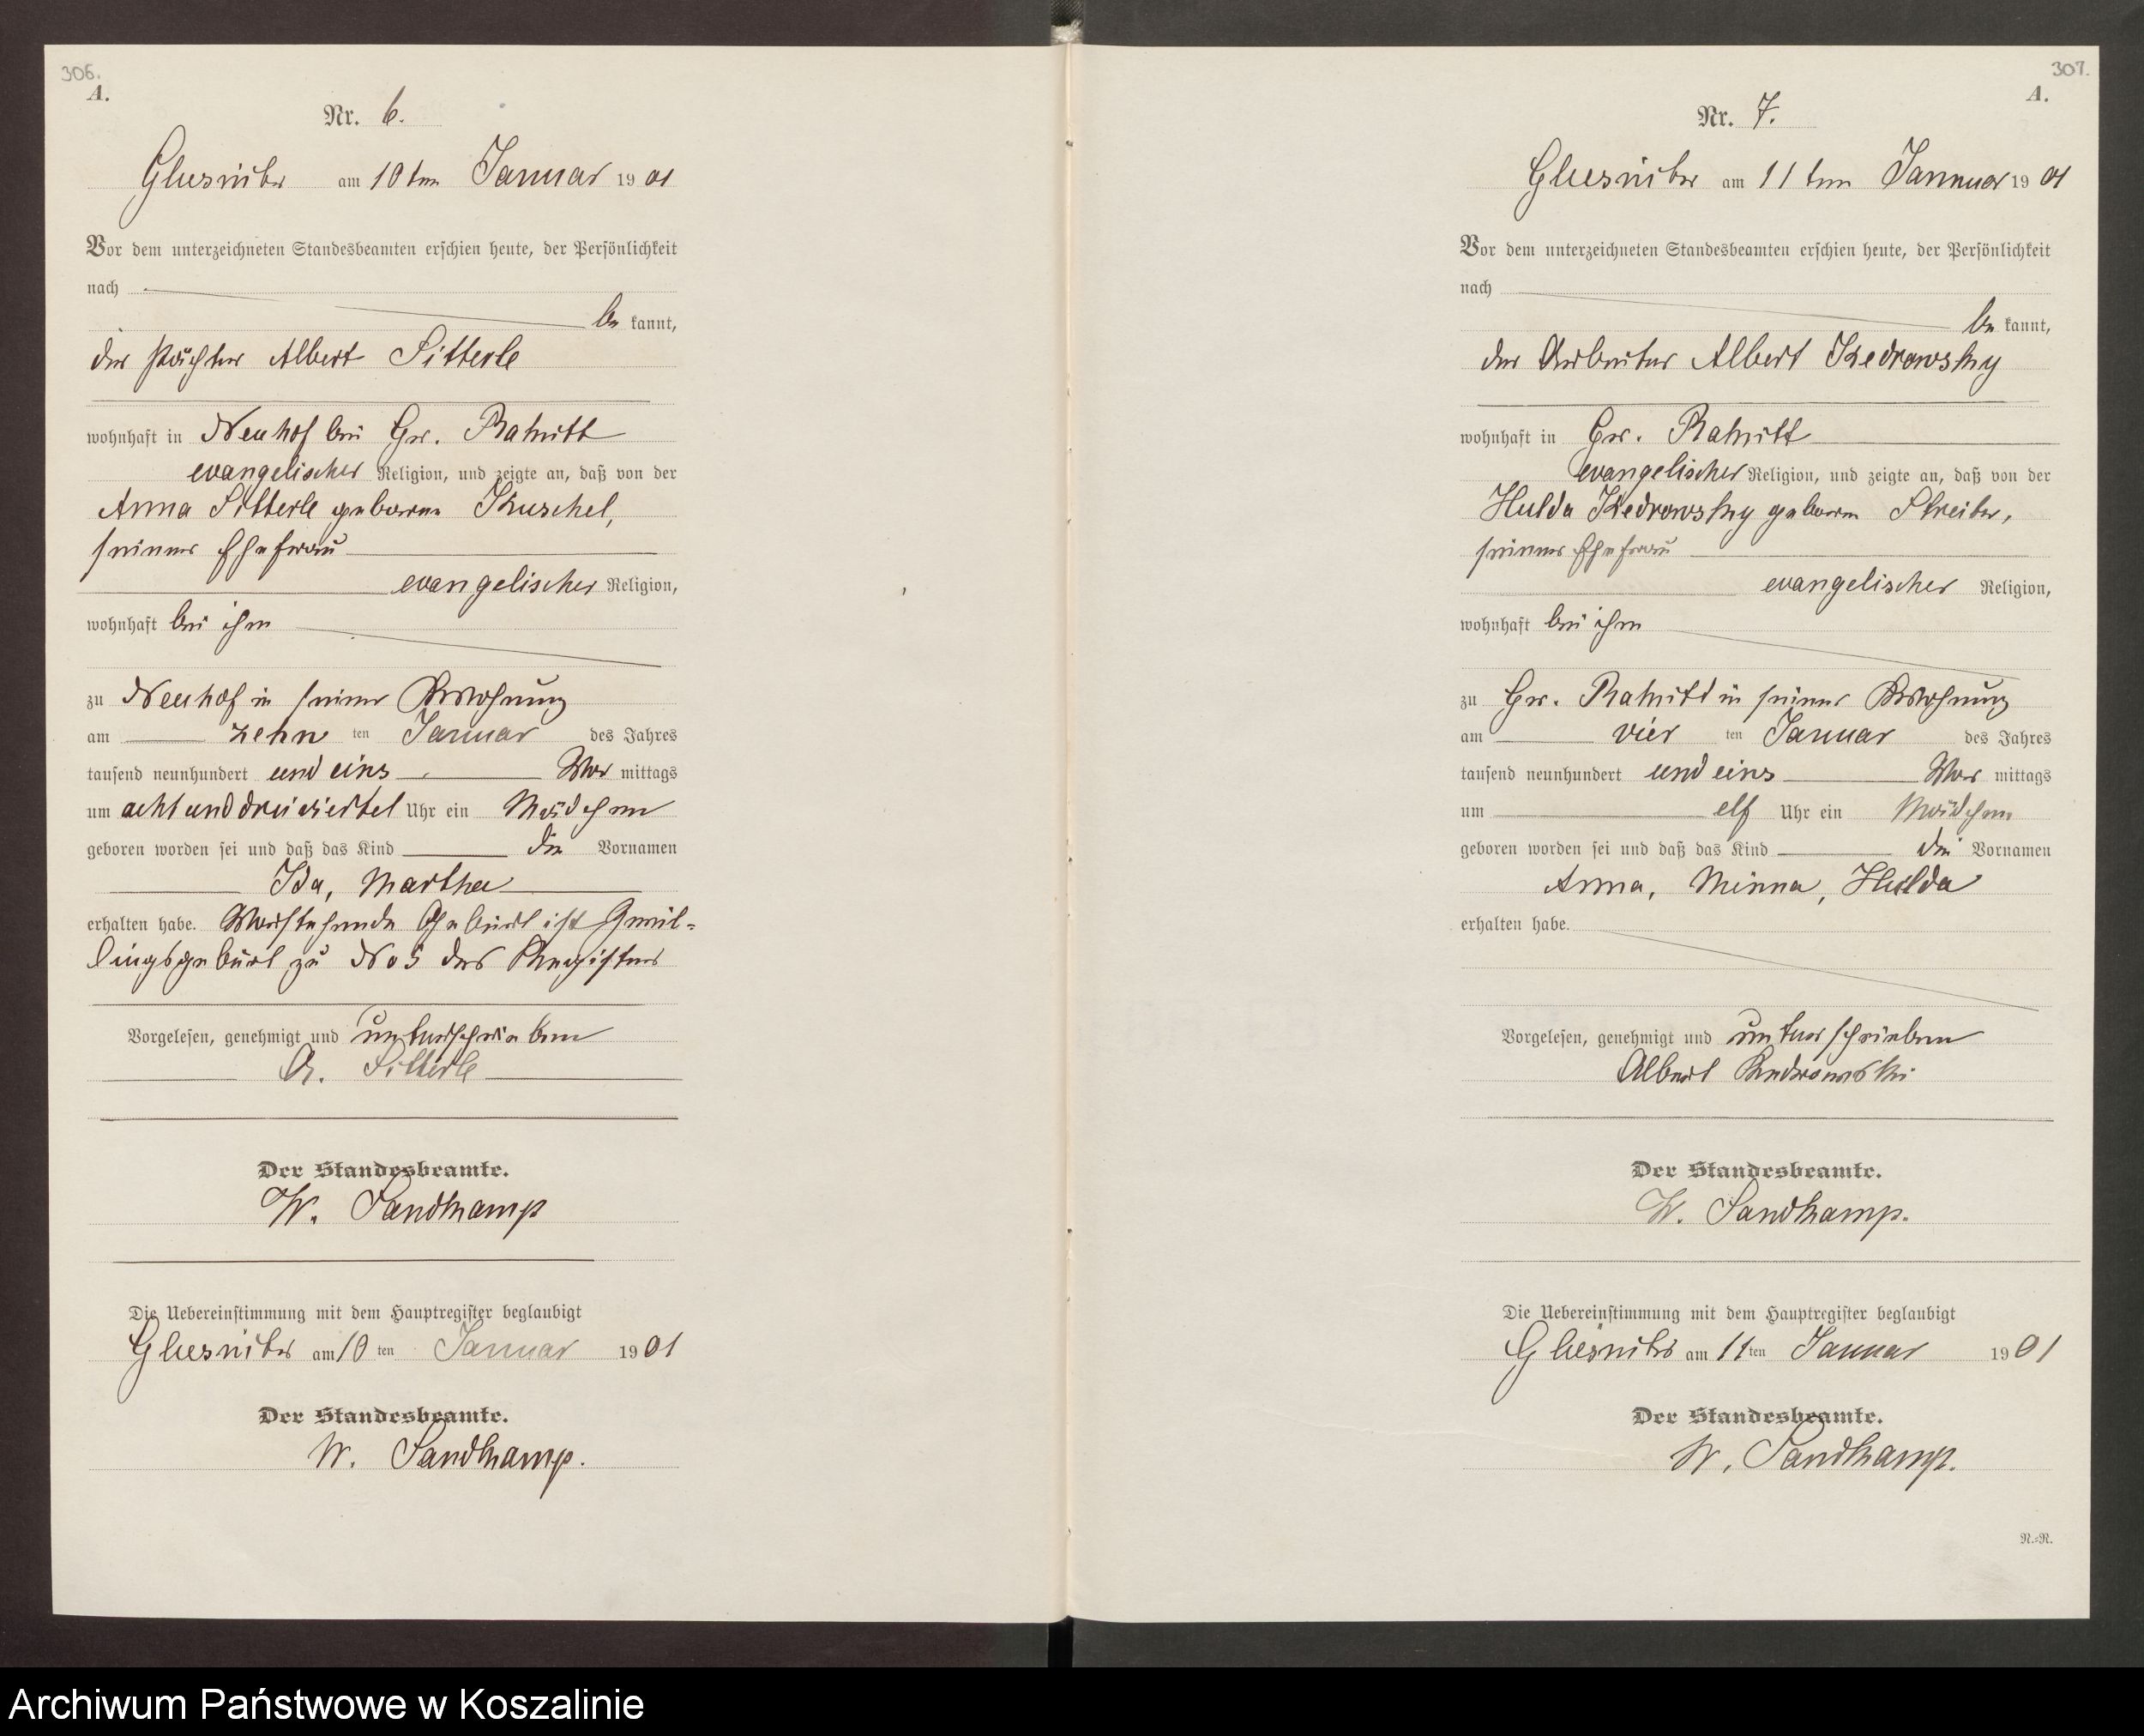 306.
A.
Nr. 6.
Glusnitz am 10ten Januar 1901
Vor dem unterzeichneten Standesbeamten erschien heute, der Persönlichkeit
nach
be kannt,
der Pächter Albert Sitterle
wohnhaft in Neuhof bei Gr. Rakitt
evangelischer Religion, und zeigte an, daß von der
Anna Sitterle geborene Kuschel,
seiner Ehefrau
evangelischer Religion,
wohnhaft bei ihm
zu Neuhof in seiner Wohnung
am zehn ten Januar des Jahres
tausend neunhundert und eins Vor mittags
um acht und dreiviertel Uhr ein Mädchen
geboren worden sei und daß das Kind die Vornamen
Ida, Martha
erhalten habe. Vorstehende Geburt ist Zwil-
lingsgeburt zu No 5 des Registers
Vorgelesen, genehmigt und unterschrieben
A. Sitterle
Der Standesbeamte.
W. Sandkamp
Die Uebereinstimmung mit dem Hauptregister beglaubigt
Glusnitz am 10 ten Januar 1901
Der Standesbeamte.
W. Sandkamp.
307.
A.
Nr. 7.
Glusnitz am 11ten Januar 1901
Vor dem unterzeichneten Standesbeamten erschien heute, der Persönlichkeit
nach
be kannt,
der Arbeiter Albert Kedrowsky
wohnhaft in Gr. Rakitt
evangelischer Religion, und zeigte an, daß von der
Hulda Kedrowsky geboren Streiter,
seiner Ehefrau
evangelischer Religion,
wohnhaft bei ihm
zu Gr. Rakitt in seiner Wohnung
am vier ten Januar des Jahres
tausend neunhundert und eins Vor mittags
um elf Uhr ein Mädchen
geboren worden sei und daß das Kind die Vornamen
Anna, Minna, Hulda
erhalten habe.
Vorgelesen, genehmigt und unterschrieben
Albert Kedrowski
Der Standesbeamte.
W. Sandkamp.
Die Uebereinstimmung mit dem Hauptregister beglaubigt
Glusnitz am 11 ten Januar 1901
Der Standesbeamte.
W. Sandkamp.
N.=N.
Archiwum Państwowe w Koszalinie